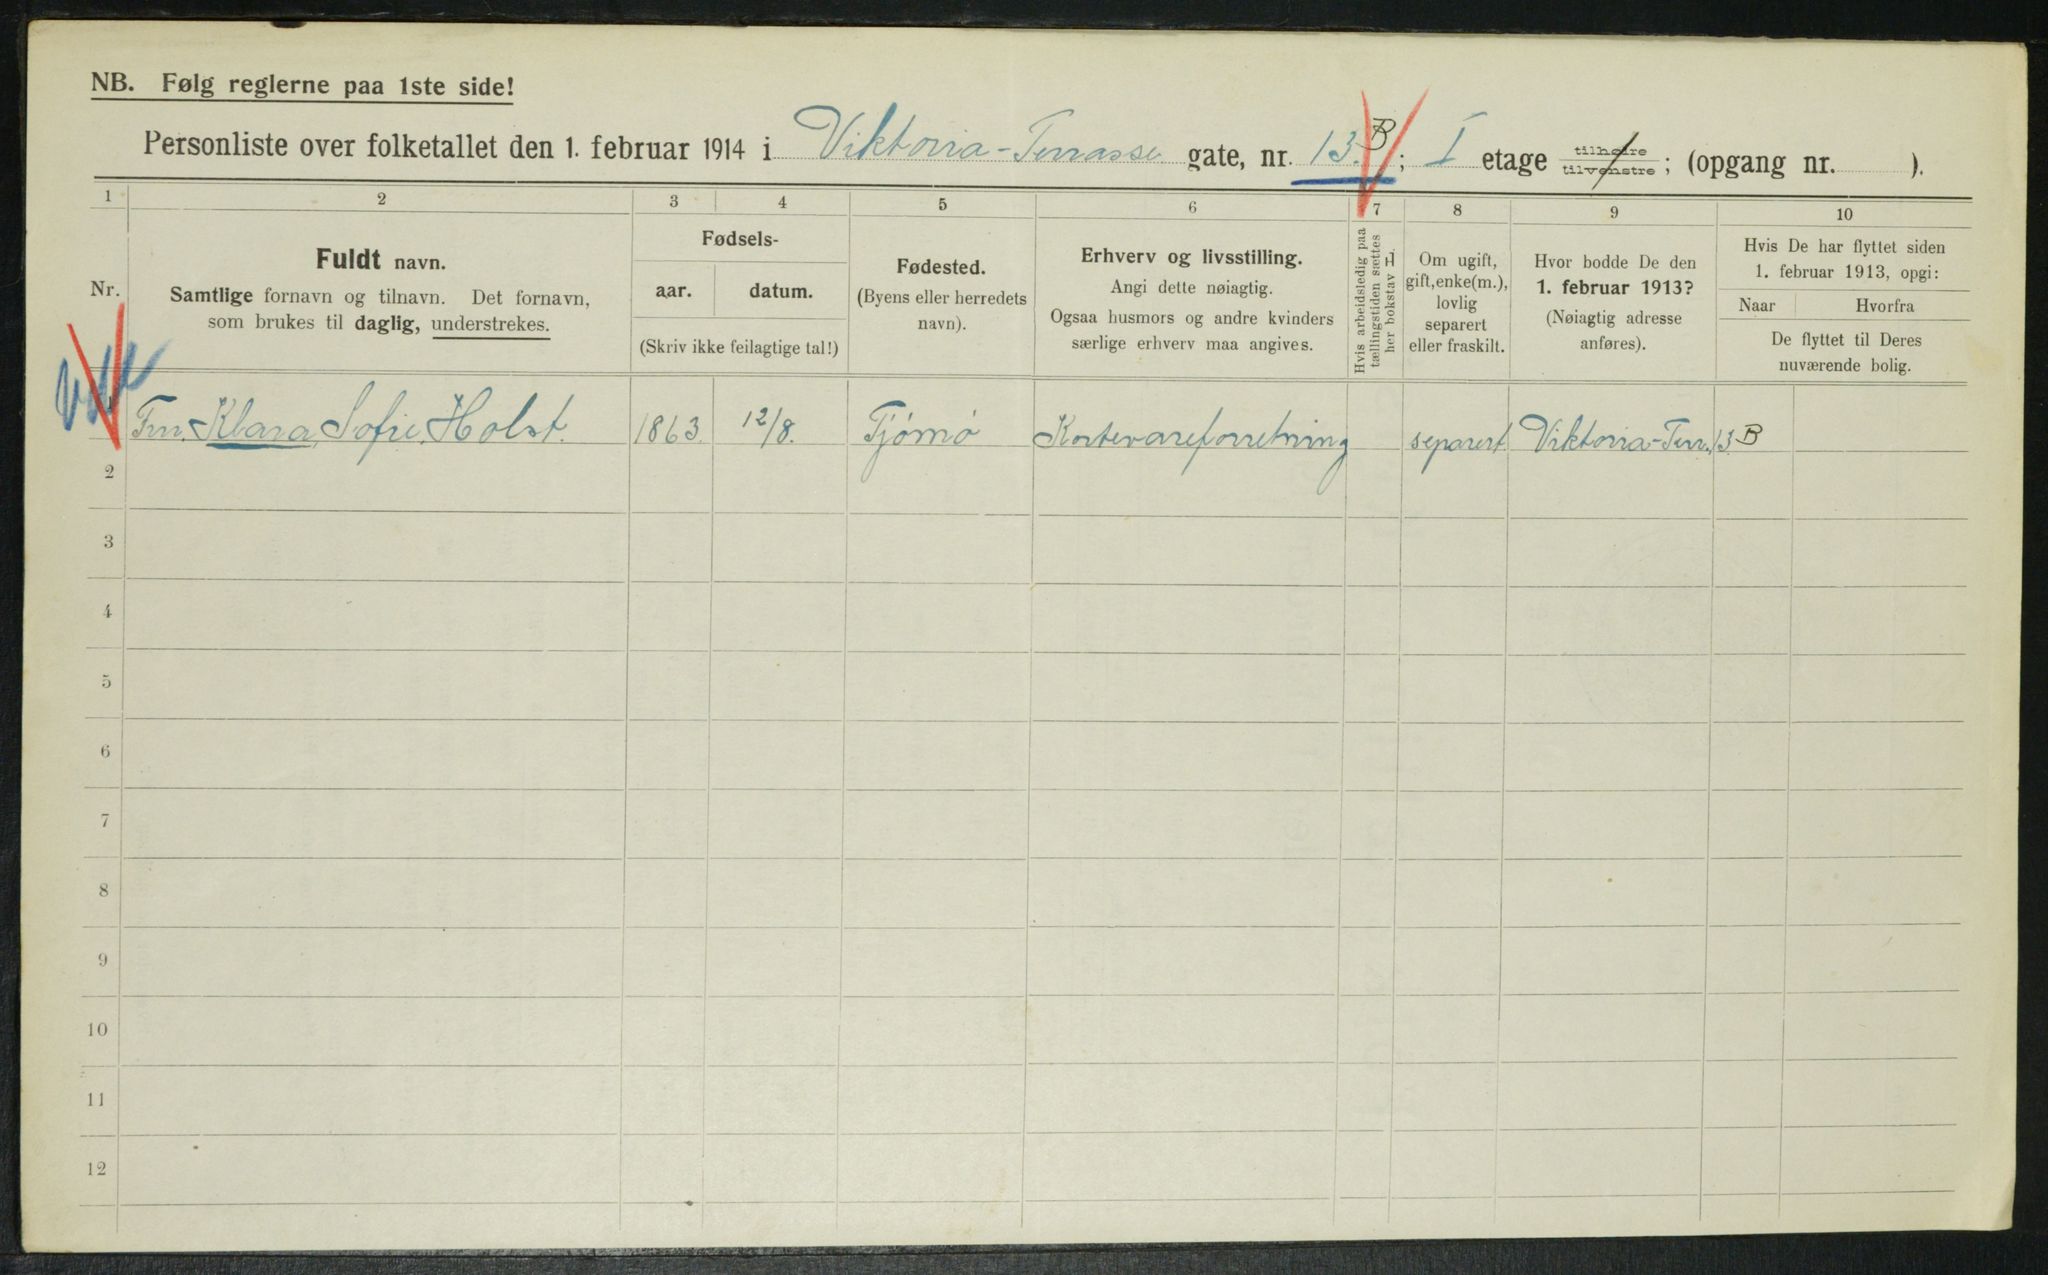 NB. Følg reglerne paa 1ste side!
Personliste over folketallet den 1. februar 1914 i Viktoria-Terrasse gate, nr. 13. B; I etage tilhøire tilvenstre; (opgang nr. ).
1 2 3 4 5 6 7 8 9 10
Nr.
Fuldt navn.
Samtlige fornavn og tilnavn. Det fornavn,
som brukes til daglig, understrekes.
Fødsels-
aar. datum.
(Skriv ikke feilagtige tal!)
Fødested.
(Byens eller herredets
navn).
Erhverv og livsstilling.
Angi dette nøiagtig.
Ogsaa husmors og andre kvinders
særlige erhverv maa angives.
Hvis arbeidsledig paa
tællingstiden sættes
her bokstav L.
Om ugift,
gift, enke(m.),
lovlig
separert
eller fraskilt.
Hvor bodde De den
1. februar 1913?
(Nøiagtig adresse
anføres).
Hvis De har flyttet siden
1. februar 1913, opgi:
Naar Hvorfra
De flyttet til Deres
nuværende bolig.
Fru. Klara, Sofie. Holst. 1863. 12/8. Tjømø Kortevareforretning separert. Viktoria-Terr. 13. B
2
3
4
5
6
7
8
9
10
11
12